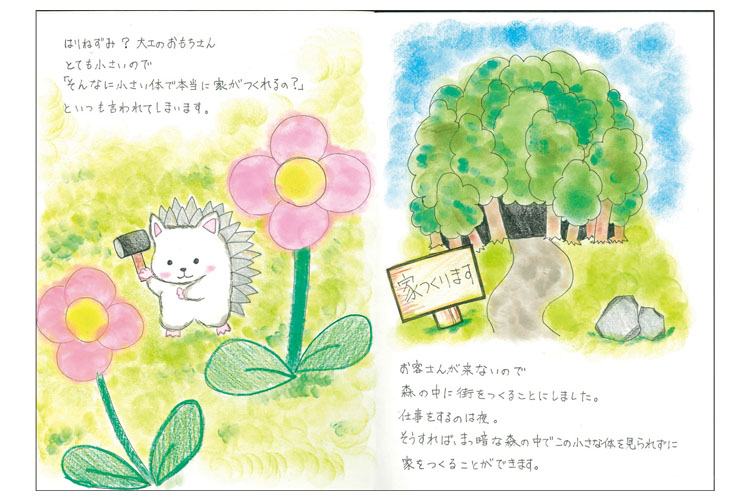 はりねずみ？大工のおもちさん
とても小さいので
「そんなに小さい体で本当に家がつくれるの？」
といつも言われてしまいます。
家つくります
お客さんが来ないので
森の中に街をつくることにしました。
仕事をするのは夜。
そうすれば、まっ暗な森の中でこの小さな体を見られずに
家をつくることができます。